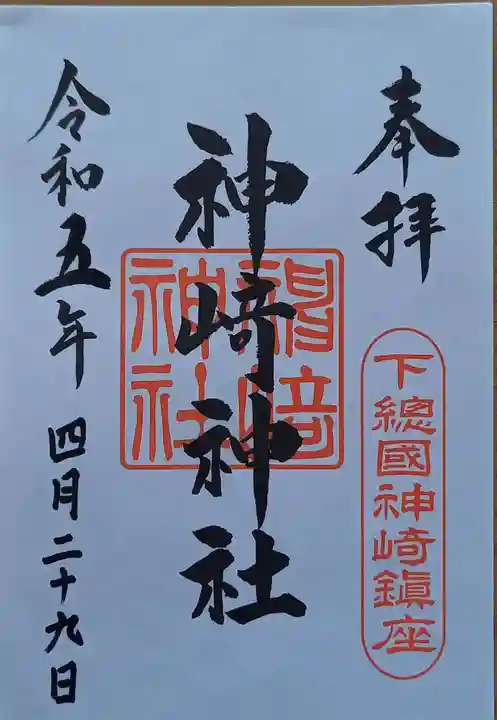 奉拝
下總國神崎鎮座
神崎神社
神崎
神社
令和五年 四月二十九日